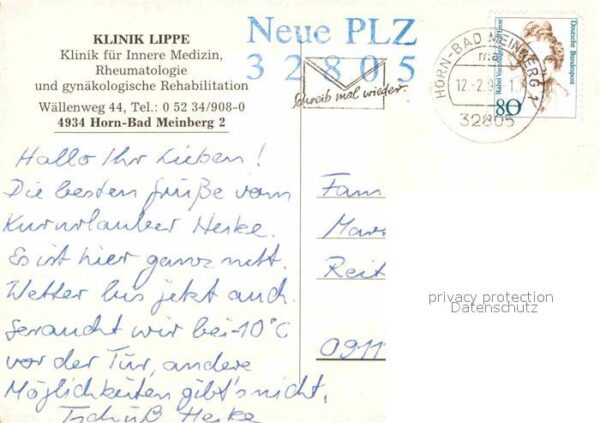 KLINIK LIPPE
Klinik für Innere Medizin,
Rheumatologie
und gynäkologische Rehabilitation
Wällenweg 44, Tel.: 0 52 34/908-0
4934 Horn-Bad Meinberg 2
Neue PLZ
32805
Schreib mal wieder
HORN-BAD MEINBERG 1
ma
12.-2.9
32805
Deutsche Bundespost
Rahel Varnhagen von Ense
80
Hallo Ihr Lieben!
Die besten Grüße vom
Kururlauber Heike.
Es ist hier ganz nett.
Wetter bis jetzt auch.
Geraucht wir bei -10°C
vor der Tür, andere
Möglichkeiten gibt's nicht.
Tschüß Heike
Fam
Mar
Reit
0911
privacy protection
Datenschutz